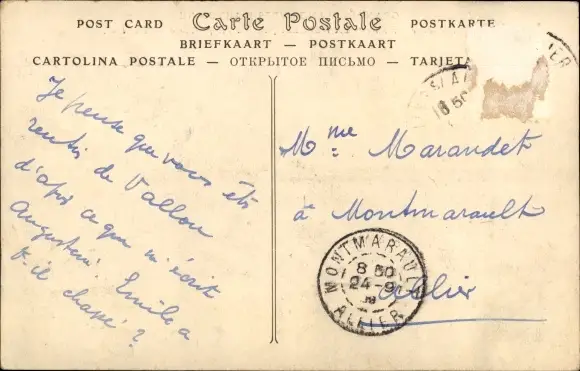 POST CARD Carte Postale POSTKARTE
BRIEFKAART — POSTKAART
CARTOLINA POSTALE — ОТКРЫТОЕ ПИСЬМО — TARJETA
Je pense que vous êtes
rentrés de Vallon
d'après ce que m'écrit
Augustine. Emile a
t-il chassé ?
Mme Marandet
à Montmarault
Allier
MONTMARAULT
8 50
24-9
ALLIER
18 50